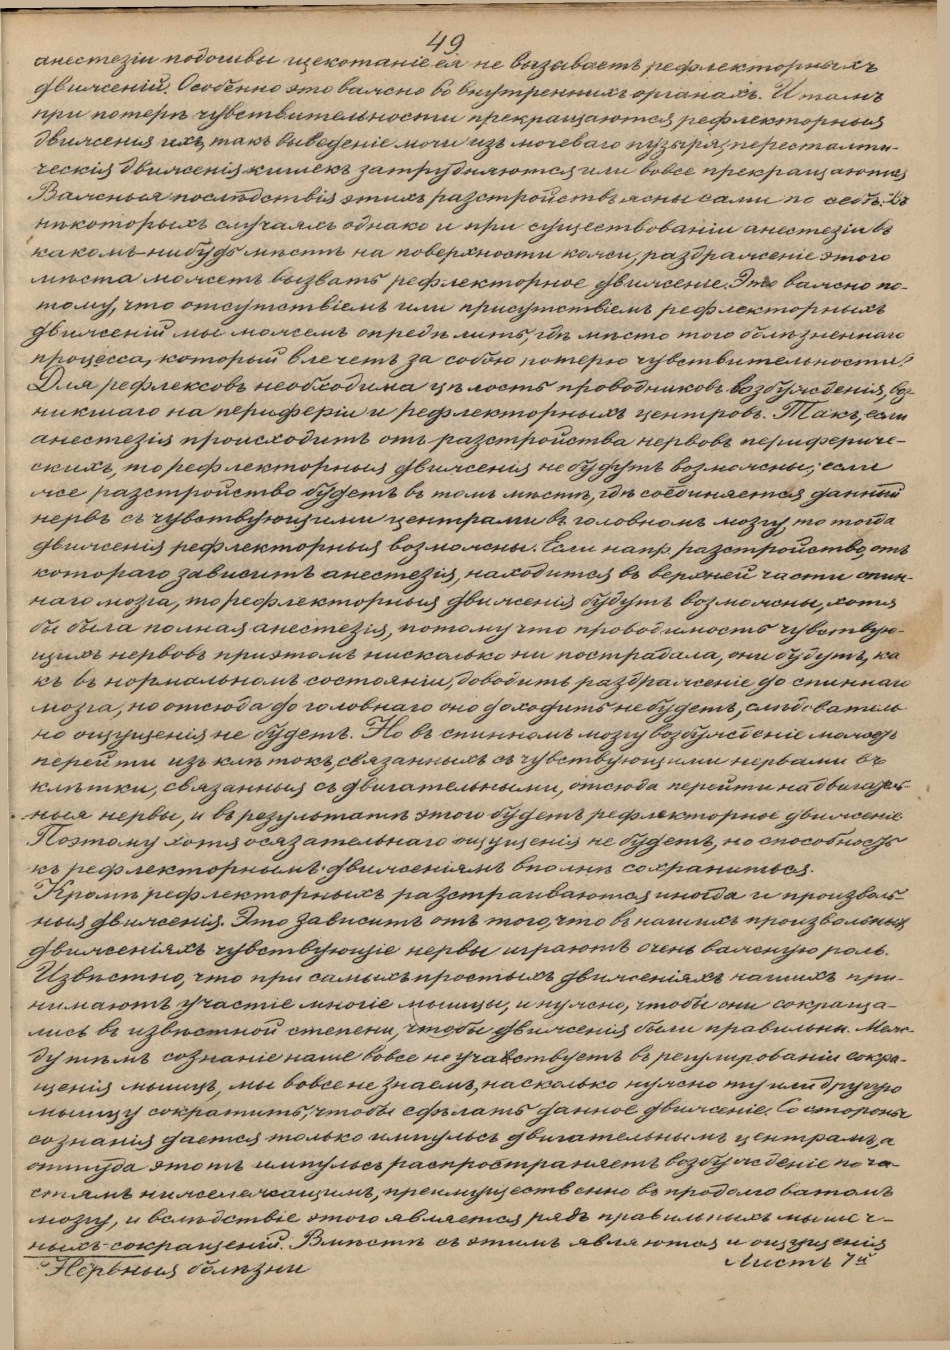 49
анестезіи подошвы щекотаніе ея не вызываетъ рефлекторныхъ
движеній. Особенно это важно во внутреннихъ органахъ. И тамъ
при потерѣ чувствительности прекращаются рефлекторныя
движенія ихъ, такъ выведеніе мочи изъ мочеваго пузыря, пересталти-
ческія движенія кишекъ затрудняются или вовсе прекращаются
Важныя послѣдствія этихъ разстройствъ ясны сами по себѣ. Въ
нѣкоторыхъ случаяхъ однако и при существованіи анестезіи въ
какомъ-нибудь мѣстѣ на поверхности кожи, раздраженіе этого
мѣста можетъ вызвать рефлекторное движеніе. Это важно по-
тому, что отсутствіемъ или присутствіемъ рефлекторныхъ
движеній мы можемъ опредѣлить, гдѣ мѣсто того болѣзненнаго
процесса, который влечетъ за собою потерю чувствительности.
Для рефлексовъ необходима цѣлость проводниковъ возбужденія, воз-
никшаго на периферіи и рефлекторныхъ центровъ. Такъ, если
анестезія происходитъ отъ разстройства нервовъ перифериче-
скихъ, то рефлекторныя движенія не будутъ возможны; если
же разстройство будетъ въ томъ мѣстѣ, гдѣ соединяется данный
нервъ съ чувствующими центрами въ головномъ мозгу, то тогда
движенія рефлекторныя возможны. Если напр. разстройство, отъ
котораго зависитъ анестезія, находится въ верхней части спин-
наго мозга, то рефлекторныя движенія будутъ возможны, хотя
бы была полная анестезія, потому что проводимость чувствую-
щихъ нервовъ приэтомъ нисколько ни пострадала, они будутъ, ка
къ въ нормальномъ состояніи, доводить раздраженіе до спиннаго
мозга, но отсюда до головнаго оно доходить не будетъ, слѣдователь
но ощущенія не будетъ. Но въ спинномъ мозгу возбужденіе можетъ
перейти изъ клѣтокъ, связанныхъ съ чувствующими нервами въ
клѣтки, связанныя съ двигательными, отсюда перейти на двигатель-
ныя нервы, и въ результатѣ этого будетъ рефлекторное движеніе
Поэтому хотя осязательнаго ощущенія не будетъ, но способность
къ рефлекторнымъ движеніямъ вполнѣ сохраниться.
Кромѣ рефлекторныхъ разстраиваются иногда и произволь-
ныя движенія. Это зависитъ отъ того, что въ нашихъ произвольныхъ
движеніяхъ чувствующіе нервы играютъ очень важную роль.
Извѣстно, что при самыхъ простыхъ движеніяхъ нашихъ при-
нимаютъ участіе многіе мышцы, и нужно, чтобы они сокраща-
лись въ извѣстной степени, чтобы движенія были правильны. Меж-
ду тѣмъ сознаніе наше вовсе не участвуетъ въ регулированіи сокра-
щенія мышцъ, мы вовсе не знаемъ, насколько нужно ту или другую
мышцу сократить, чтобы сдѣлать данное движеніе. Со стороны
сознанія дается только импульсъ двигательнымъ центрамъ, а
оттуда этотъ импульсъ распространяетъ возбужденіе по ча-
стямъ нижележащимъ, преимущественно въ продолговатомъ
мозгу, и вслѣдствіе этого является рядъ правильныхъ мышеч-
ныхъ сокращеній. Вмѣстѣ съ этимъ являются и ощущенія
Нервныя болѣзни
Листъ 7й